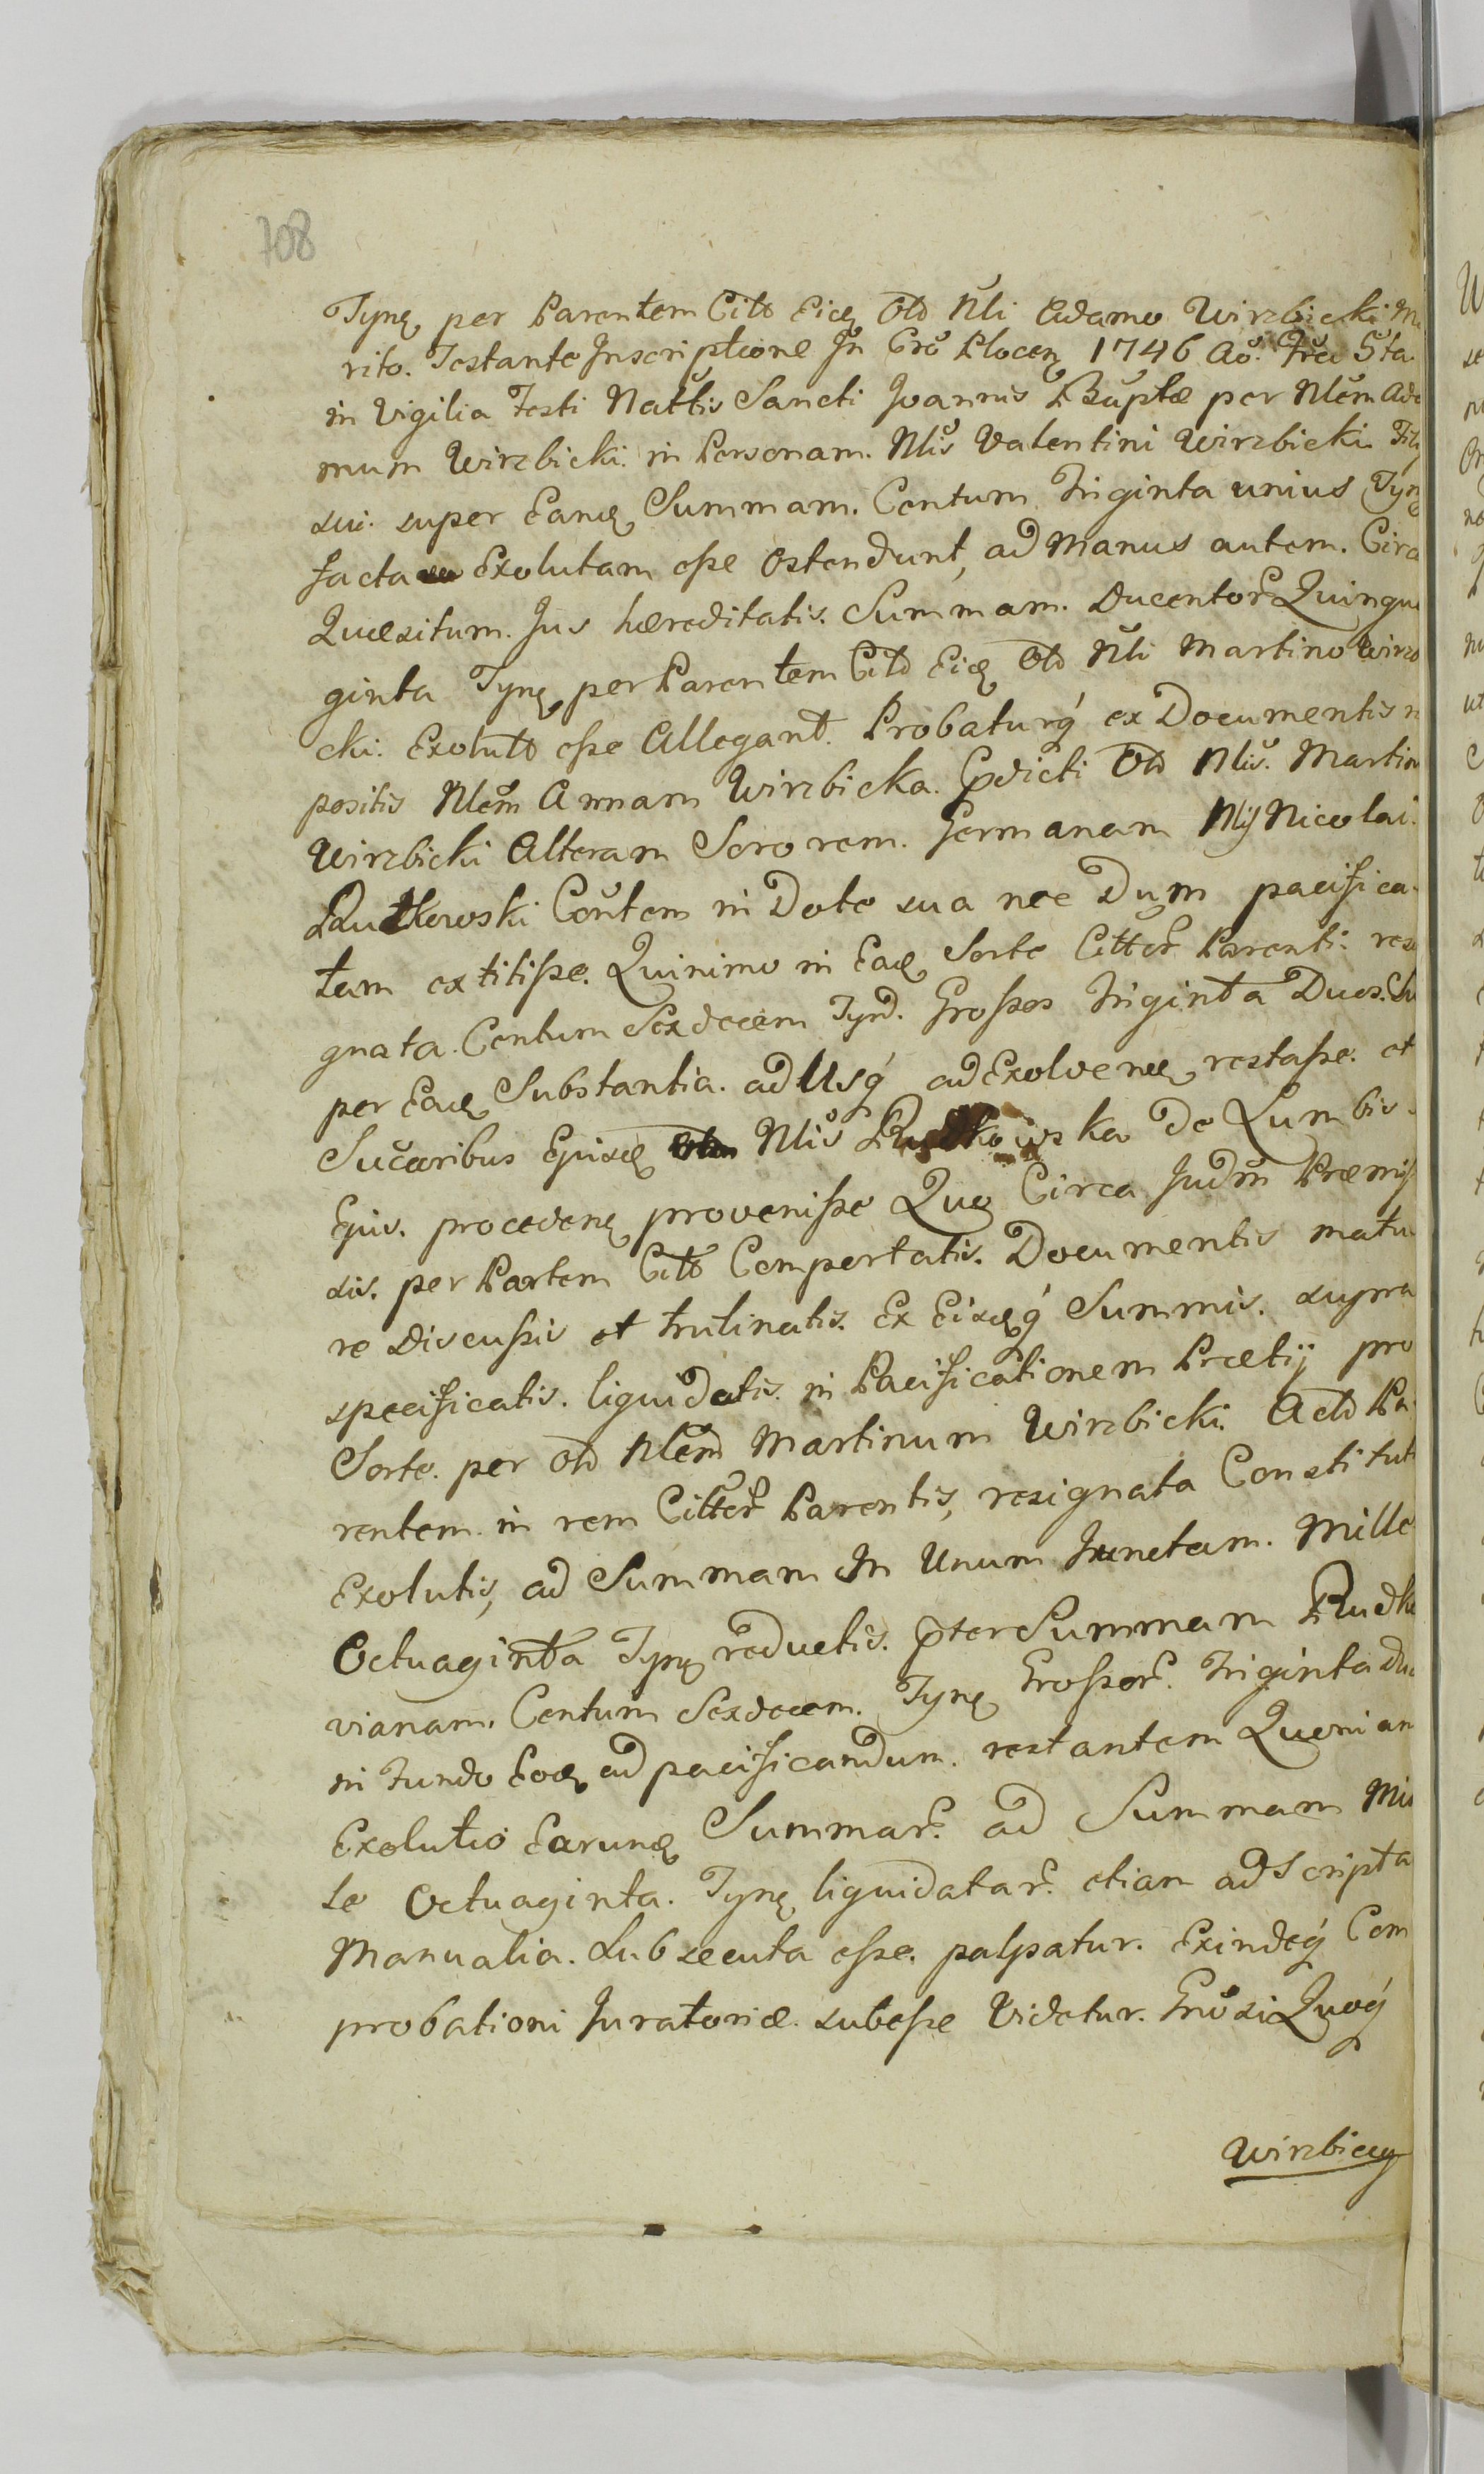 708
Tynę per Parentem Citõ Eidę Olõ Nli Adamo Wirzbicki Ma
rito. Testante Inscriptione In Crõ Plocen 1746 Aõ. Fria 5ta
in Vigilia Festi Nattis Sancti Joannis Bapłæ per Nlem Ada
mum Wirzbicki in Personam. Nlis Valentini Wirzbicki Filij
sui. super Eandę Summam. Centum Triginta unius Tynę
facta Exolutam esse Ostendunt, ad Manus autem. Circa
Quæsitum. Jus hæreditatis. Summam. Ducentor. Quinqua
ginta Tynę, per Parentem Citõ Eidę Olõ Nli Martino Wirzbi
cki. Exolutõ esse Allegant. Probaturq́ ex Documentis
positis Nlem Annam Wirzbicka. Pdicti Olõ Nlis. Martini
Wirzbicki Alteram Sororem. Germanam Nlij Nicolai.
Rutkowski Contem in Dote sua nec Dum pacifica
tam extitisse. Quinimo in Eadę Sorte Cittor. Parenti. resi
gnata. Centum Sexdecem Tynõ. Grossos Triginta Duos. Su
per Eadę Substantia. ad Usq́ ad Exolvendę restasse. et
Sucaribus Ejusdę Nlis Rutkowska De Lumbis
Ejus. procedenę provenisse Quo Circa Judm Præmis
sis. per Partem Citõ Comportatis. Documentis matu
re Discussis et trutinatis. Ex Eisdęq́ Summis. supra
specificatis. liquidatis. in Pacificationem Prætij pro
Sorte. per Olõ Nlem Martinum Wirzbicki. Actõ Pa
rentem. in rem Cittor. Parentis, resignata Constitut
Exolutis, ad Summam In Unum Junctam. Mille
Octuaginta Tynę reductis. pter Summam Rudko
vianam. Centum Sexdecem. Tynę Grossor. Triginta Duo
in Fundo Eodę ad pacificandum. restantem Quoniam
Exolutio Earundę Summar. ad Summam Mil
le Octuaginta. Tynę liquidatar. etiam ad Scripta
Manualia. Subsecuta esse. palpatur. Exindeq́ Com
probationi Juratoriæ. subesse Videtur. Quoq́
Wirzbiccy